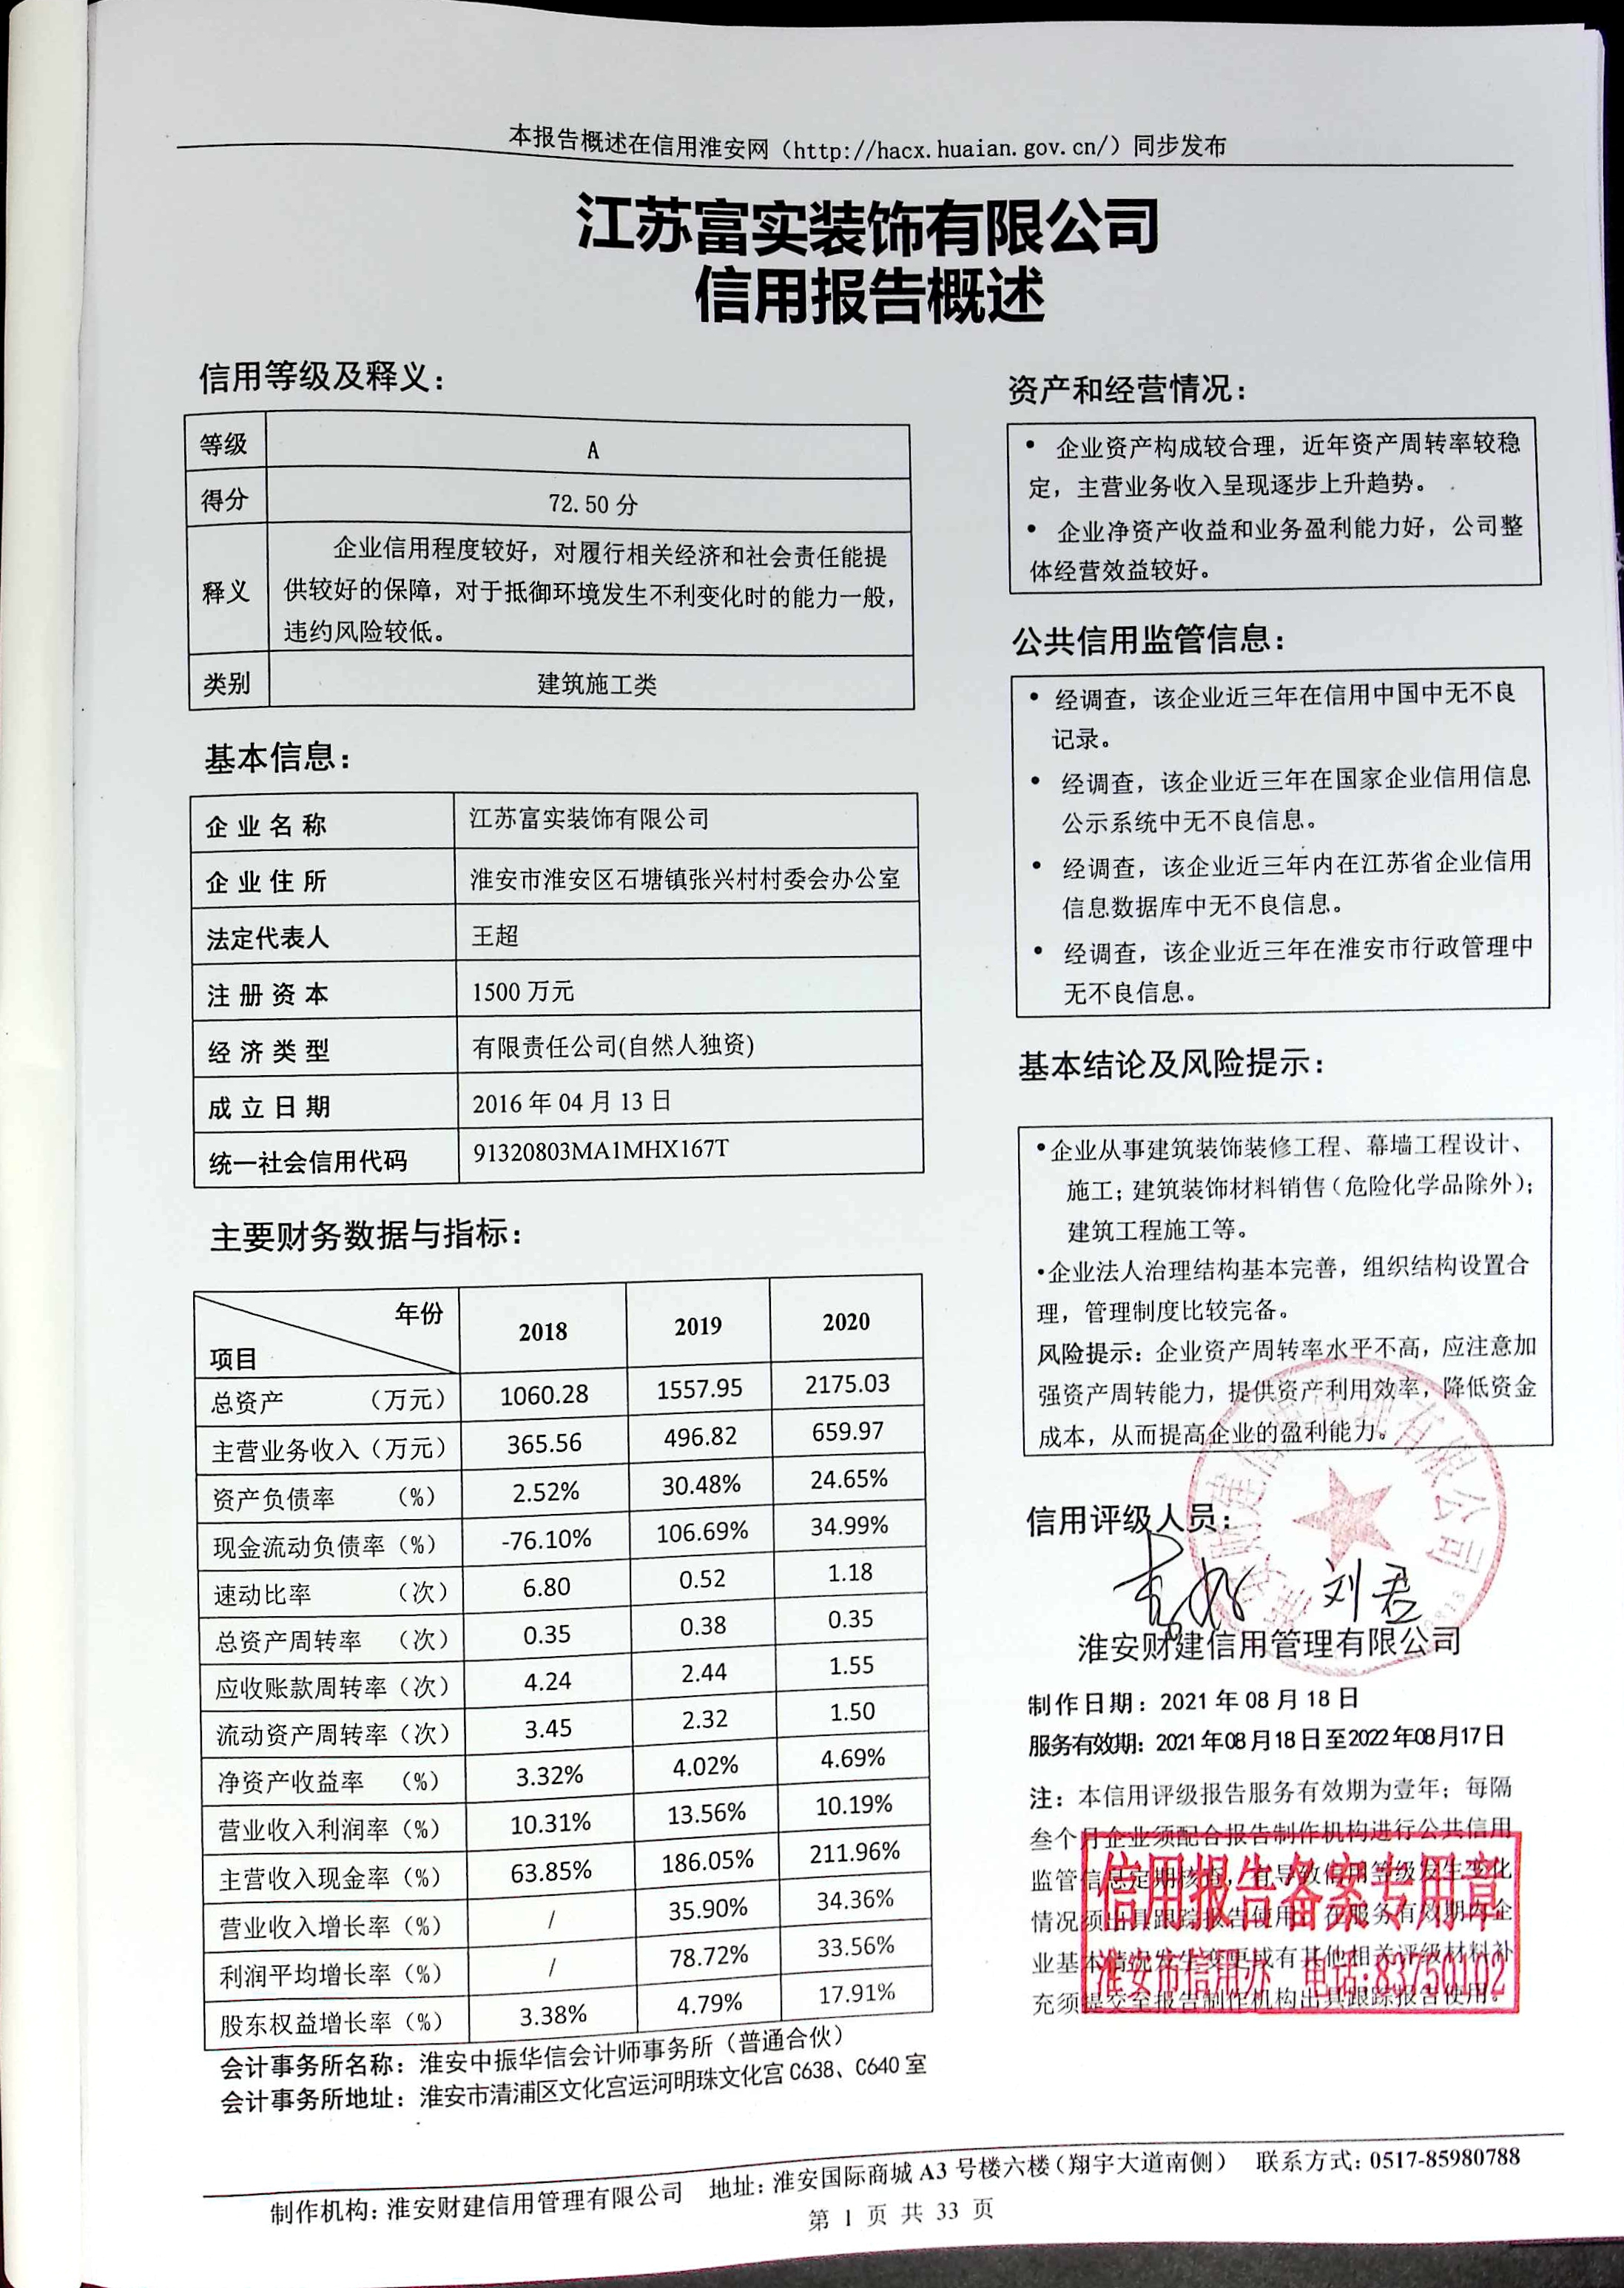 本报告概述在信用淮安网（http://hacx.huaian.gov.cn/）同步发布
江苏富实装饰有限公司
信用报告概述
信用等级及释义：
等级 A
得分 72.50 分
释义 企业信用程度较好，对履行相关经济和社会责任能提
供较好的保障，对于抵御环境发生不利变化时的能力一般，
违约风险较低。
类别 建筑施工类
基本信息：
企业名称 江苏富实装饰有限公司
企业住所 淮安市淮安区石塘镇张兴村村委会办公室
法定代表人 王超
注册资本 1500 万元
经济类型 有限责任公司(自然人独资)
成立日期 2016 年 04 月 13 日
统一社会信用代码 91320803MA1MHX167T
主要财务数据与指标：
年份 项目 2018 2019 2020
总资产 （万元） 1060.28 1557.95 2175.03
主营业务收入（万元） 365.56 496.82 659.97
资产负债率 （%） 2.52% 30.48% 24.65%
现金流动负债率（%） -76.10% 106.69% 34.99%
速动比率 （次） 6.80 0.52 1.18
总资产周转率 （次） 0.35 0.38 0.35
应收账款周转率（次） 4.24 2.44 1.55
流动资产周转率（次） 3.45 2.32 1.50
净资产收益率 （%） 3.32% 4.02% 4.69%
营业收入利润率（%） 10.31% 13.56% 10.19%
主营收入现金率（%） 63.85% 186.05% 211.96%
营业收入增长率（%） / 35.90% 34.36%
利润平均增长率（%） / 78.72% 33.56%
股东权益增长率（%） 3.38% 4.79% 17.91%
会计事务所名称：淮安中振华信会计师事务所（普通合伙）
会计事务所地址：淮安市清浦区文化宫运河明珠文化宫 C638、C640 室
资产和经营情况：
• 企业资产构成较合理，近年资产周转率较稳
定，主营业务收入呈现逐步上升趋势。
• 企业净资产收益和业务盈利能力好，公司整
体经营效益较好。
公共信用监管信息：
• 经调查，该企业近三年在信用中国中无不良
记录。
• 经调查，该企业近三年在国家企业信用信息
公示系统中无不良信息。
• 经调查，该企业近三年内在江苏省企业信用
信息数据库中无不良信息。
• 经调查，该企业近三年在淮安市行政管理中
无不良信息。
基本结论及风险提示：
•企业从事建筑装饰装修工程、幕墙工程设计、
施工；建筑装饰材料销售（危险化学品除外）；
建筑工程施工等。
•企业法人治理结构基本完善，组织结构设置合
理，管理制度比较完备。
风险提示：企业资产周转率水平不高，应注意加
强资产周转能力，提供资产利用效率，降低资金
成本，从而提高企业的盈利能力。
信用评级人员：
刘君
淮安财建信用管理有限公司
制作日期：2021 年 08 月 18 日
服务有效期：2021 年08 月18 日至2022 年08 月17日
注：本信用评级报告服务有效期为壹年；每隔
叁个月企业须配合报告制作机构进行公共信用
监管信息定期核查，有导致信用等级发生变化
情况须出具跟踪报告使用。在服务有效期内企
业基本情况发生变更或有其他相关评级材料补
充须提交至报告制作机构出具跟踪报告使用。
信用报告备案专用章
淮安市信用办 电话:83750102
制作机构：淮安财建信用管理有限公司 地址：淮安国际商城 A3 号楼六楼（翔宇大道南侧） 联系方式：0517-85980788
第 1 页 共 33 页